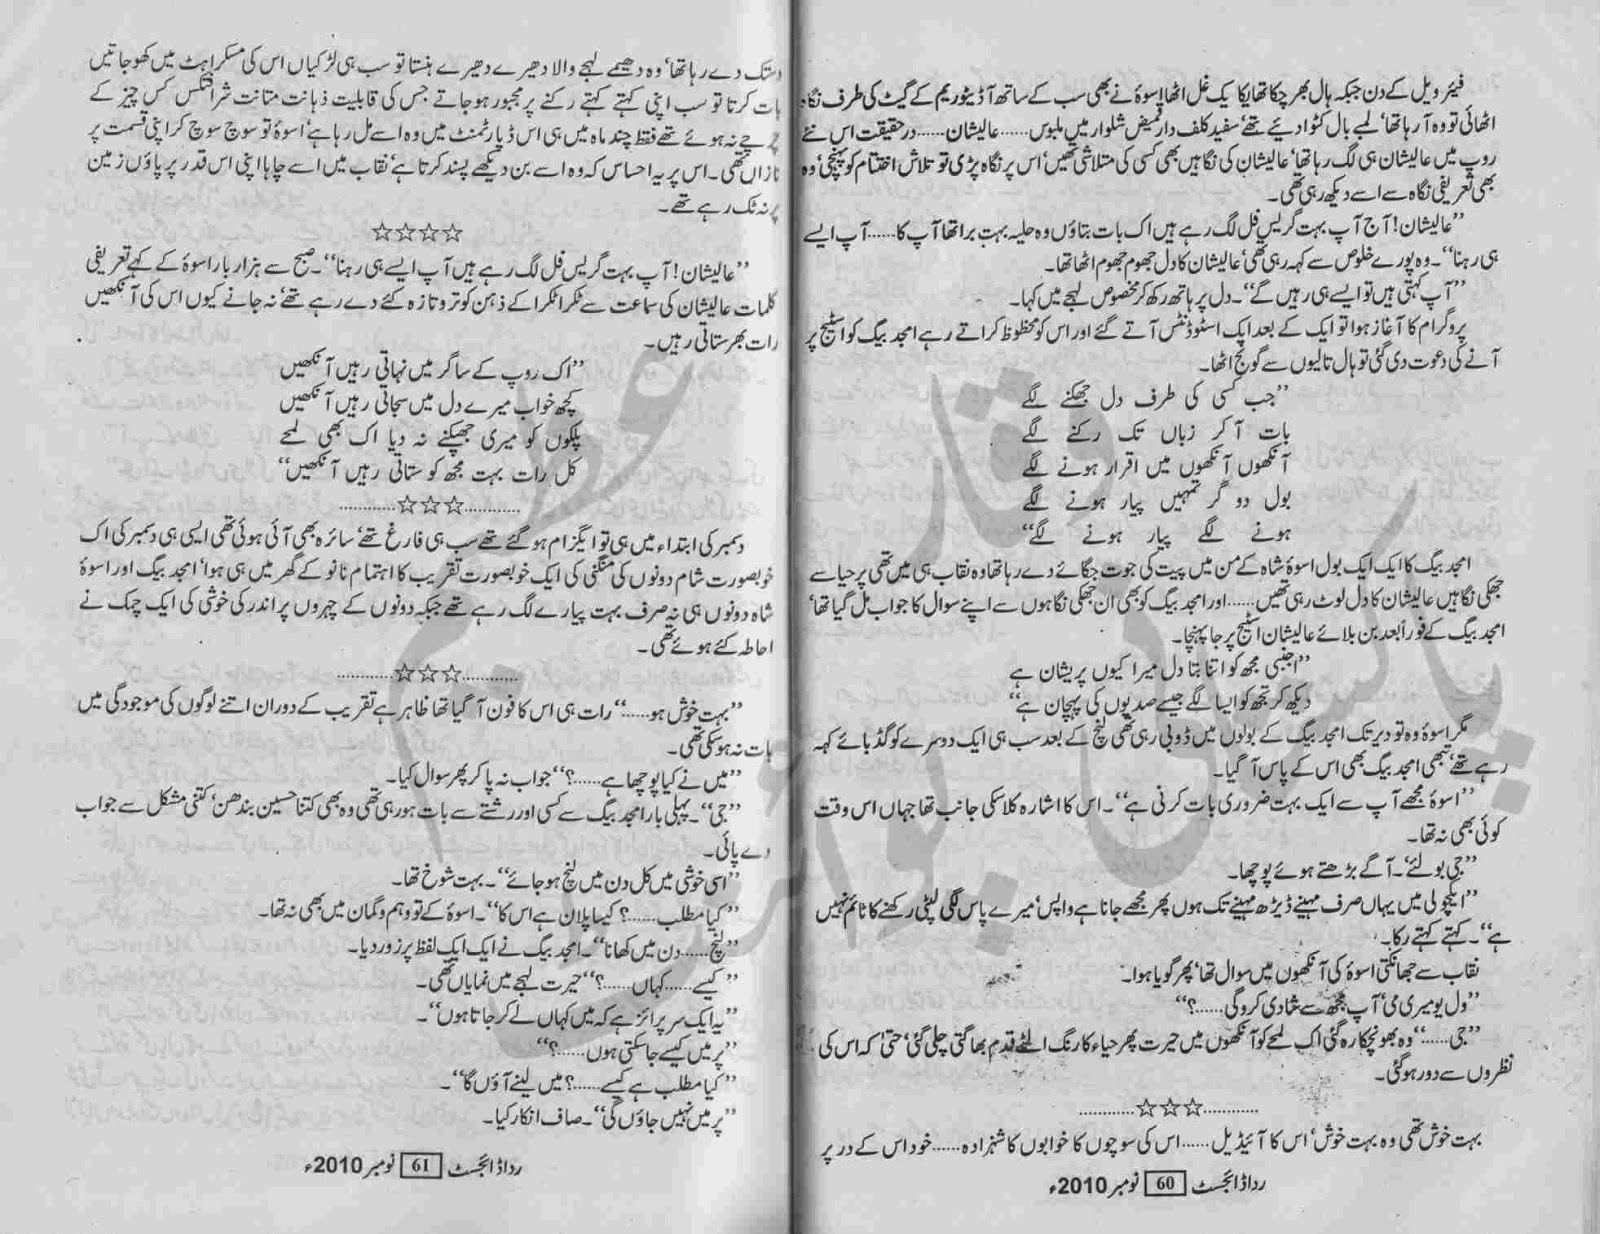 فیئر ویل کے دن جبکہ ہال بھر چکا تھا یکا یک غل اٹھا اسوۂ نے بھی سب کے ساتھ آڈیٹوریم کے گیٹ کی طرف نگاہ
اٹھائی تو وہ آ رہا تھا‘ لمبے بال کٹوا دیئے تھے‘ سفید کلف دار قمیض شلوار میں ملبوس...... عالیشان...... در حقیقت اس نئے
روپ میں عالیشان ہی لگ رہا تھا‘ عالیشان کی نگاہیں بھی کسی کی متلاشی تھیں‘ اس پر نگاہ پڑی تو تلاش اختتام کو پہنچی‘ وہ
بھی تعریفی نگاہ سے اسے دیکھ رہی تھی۔
”عالیشان! آج آپ بہت گریس فل لگ رہے ہیں اک بات بتاؤں وہ حلیہ بہت برا تھا آپ کا...... آپ ایسے
ہی رہنا“۔ وہ پورے خلوص سے کہہ رہی تھی‘ عالیشان کا دل جھوم جھوم اٹھا تھا۔
”آپ کہتی ہیں تو ایسے ہی رہیں گے“۔ دل پر ہاتھ رکھ کر مخصوص لہجے میں کہا۔
پروگرام کا آغاز ہوا تو ایک کے بعد ایک اسٹوڈنٹس آتے گئے اور اس کو محظوظ کراتے رہے امجد بیگ کو اسٹیج پر
آنے کی دعوت دی گئی تو ہال تالیوں سے گونج اٹھا۔
”جب کسی کی طرف دل جھکنے لگے
بات آ کر زباں تک رکنے لگے
آنکھوں آنکھوں میں اقرار ہونے لگے
بول دو گر تمہیں پیار ہونے لگے
ہونے لگے پیار ہونے لگے“
امجد بیگ کا ایک ایک بول اسوۂ شاہ کے من میں پیت کی جوت جگائے دے رہا تھا وہ نقاب ہی میں تھی پر حیا سے
جھکی نگاہیں عالیشان کا دل لوٹ رہی تھیں...... اور امجد بیگ کو بھی ان جھکی نگاہوں سے اپنے سوال کا جواب مل گیا تھا‘
امجد بیگ کے فوراً بعد بن بلائے عالیشان اسٹیج پر جا پہنچا۔
”اجنبی مجھ کو اتنا بتا دل میرا کیوں پریشان ہے
دیکھ کر تجھ کو ایسا لگے جیسے صدیوں کی پہچان ہے“
مگر اسوۂ وہ تو دیر تک امجد بیگ کے بولوں میں ڈوبی رہی تھی لنچ کے بعد سب ہی ایک دوسرے کو گڈ بائے کہہ
رہے تھے‘ تبھی امجد بیگ بھی اس کے پاس آ گیا۔
”اسوۂ مجھے آپ سے ایک بہت ضروری بات کرنی ہے“۔ اس کا اشارہ کلاس کی جانب تھا جہاں اس وقت
کوئی بھی نہ تھا۔
”جی بولئے“۔ آگے بڑھتے ہوئے پوچھا۔
”ایکچولی میں یہاں صرف مہینے ڈیڑھ مہینے تک ہوں پھر مجھے جانا ہے واپس‘ میرے پاس لگی لپٹی رکھنے کا ٹائم نہیں
ہے“۔ کہتے کہتے رکا۔
نقاب سے جھانکتی اسوۂ کی آنکھوں میں سوال تھا‘ پھر گویا ہوا۔
”ول یو میری می‘ آپ مجھ سے شادی کرو گی......؟“
”جی......“ وہ بھونچکا رہ گئی اک لمحے کو آنکھوں میں حیرت پھر حیاء کا رنگ الٹے قدم بھاگتی چلی گئی‘ حتیٰ کہ اس کی
نظروں سے دور ہو گئی۔
............☆☆☆............
بہت خوش تھی وہ بہت خوش‘ اس کا آئیڈیل...... اس کی سوچوں کا خوابوں کا شہزادہ...... خود اس کے در پر
ردا ڈائجسٹ 60 نومبر 2010ء
دستک دے رہا تھا‘ وہ دھیمے لہجے والا دھیرے دھیرے ہنستا تو سب ہی لڑکیاں اس کی مسکراہٹ میں کھو جاتیں
بات کرتا تو سب اپنی کہتے کہتے رکنے پر مجبور ہو جاتے جس کی قابلیت ذہانت متانت شرافت کس کس چیز کے
چرچے نہ ہوئے تھے فقط چند ماہ میں ہی اس ڈپارٹمنٹ میں وہ اسے مل رہا ہے‘ اسوۂ تو سوچ سوچ کر اپنی قسمت پر
نازاں تھی۔ اس پر یہ احساس کہ وہ اسے بن دیکھے پسند کرتا ہے‘ نقاب میں اسے چاہا اپنی اس قدر پر پاؤں زمین
پر نہ ٹک رہے تھے۔
☆☆☆☆
”عالیشان! آپ بہت گریس فل لگ رہے ہیں آپ ایسے ہی رہنا“۔ صبح سے ہزار بار اسوۂ کے کہے تعریفی
کلمات عالیشان کی سماعت سے ٹکرا ٹکرا کے ذہن کو تر و تازہ کئے دے رہے تھے‘ نہ جانے کیوں اس کی آنکھیں
رات بھر ستاتی رہیں۔
”اک روپ کے ساگر میں نہاتی رہیں آنکھیں
کچھ خواب میرے دل میں سجاتی رہیں آنکھیں
پلکوں کو میری جھپکنے نہ دیا اک بھی لمحے
کل رات بہت مجھ کو ستاتی رہیں آنکھیں“
............☆☆☆............
دسمبر کی ابتداء میں ہی تو ایگزام ہو گئے تھے سب ہی فارغ تھے‘ سائرہ بھی آئی ہوئی تھی ایسی ہی دسمبر کی اک
خوبصورت شام دونوں کی منگنی کی ایک خوبصورت تقریب کا اہتمام نانو کے گھر میں ہی ہوا‘ امجد بیگ اور اسوۂ
شاہ دونوں ہی نہ صرف بہت پیارے لگ رہے تھے جبکہ دونوں کے چہروں پر اندر کی خوشی کی ایک چمک نے
احاطہ کئے ہوئے تھی۔
............☆☆☆............
”بہت خوش ہو......“ رات ہی اس کا فون آ گیا تھا ظاہر ہے تقریب کے دوران اتنے لوگوں کی موجودگی میں
بات نہ ہو سکی تھی۔
”میں نے کیا پوچھا ہے......؟“ جواب نہ پا کر پھر سوال کیا۔
”جی“۔ پہلی بار امجد بیگ سے کسی اور رشتے سے بات ہو رہی تھی وہ بھی کتنا حسین بندھن‘ کتنی مشکل سے جواب
دے پائی۔
”اسی خوشی میں کل دن میں لنچ ہو جائے“۔ بہت شوخ تھا۔
”کیا مطلب......؟ کیسا پلان ہے اس کا“۔ اسوۂ کے تو وہم و گمان میں بھی نہ تھا۔
”لنچ...... دن میں کھانا“۔ امجد بیگ نے ایک ایک لفظ پر زور دیا۔
”کیسے...... کہاں......؟“ حیرت لہجے میں نمایاں تھی۔
”یہ ایک سرپرائز ہے کہ میں کہاں لے کر جاتا ہوں“۔
”پر میں کیسے جا سکتی ہوں......؟“
”کیا مطلب ہے کیسے......؟ میں لینے آؤں گا“۔
”پر میں نہیں جاؤں گی“۔ صاف انکار کیا۔
ردا ڈائجسٹ 61 نومبر 2010ء